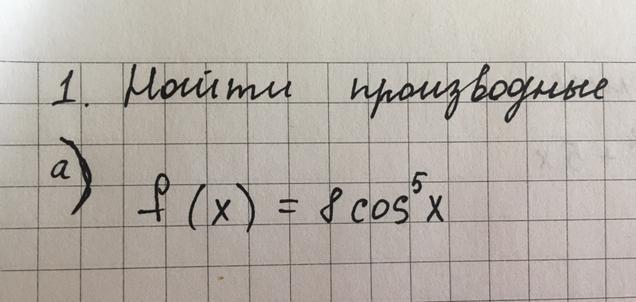 1. Найти производные
а) f(x) = 8cos⁵x